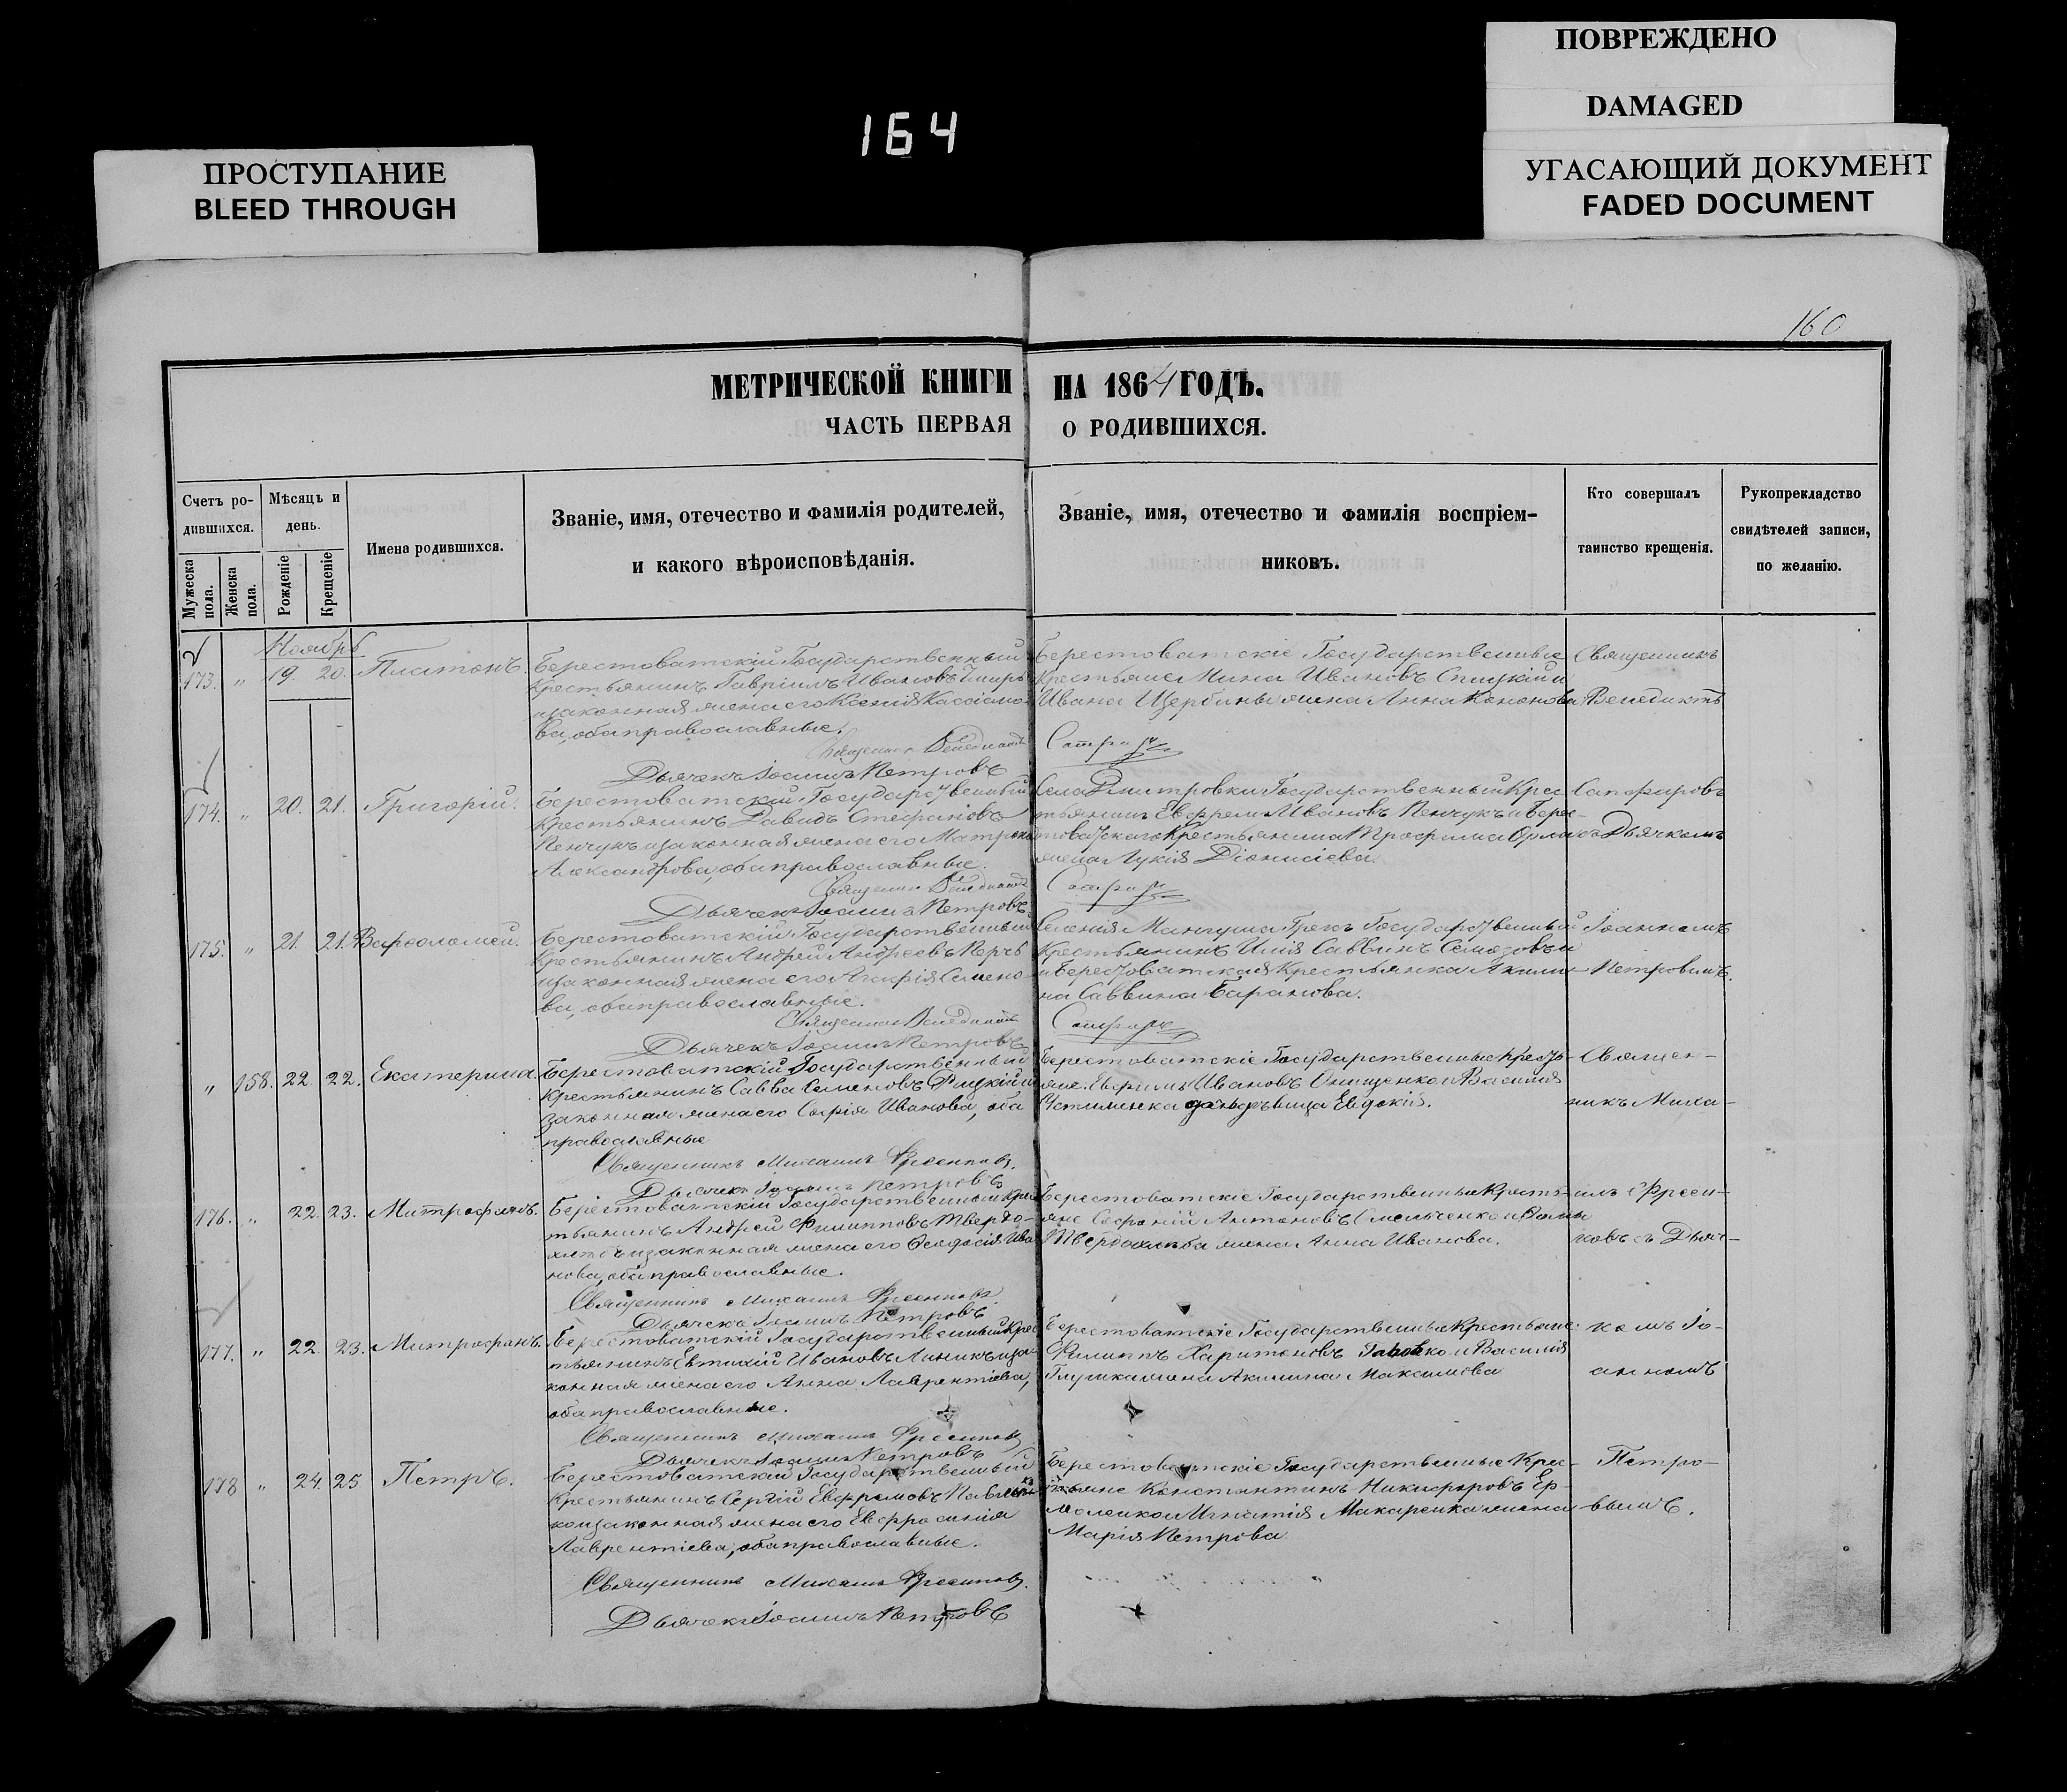 ПОВРЕЖДЕНО
DAMAGED
164
ПРОСТУПАНИЕ
BLEED THROUGH
УГАСАЮЩИЙ ДОКУМЕНТ
FADED DOCUMENT
160
МЕТРИЧЕСКОЙ КНИГИ НА 1864 ГОДЪ.
ЧАСТЬ ПЕРВАЯ О РОДИВШИХСЯ.
Счетъ ро-
дившихся.
Мужеска пола.
Женска пола.
Мѣсяцъ и
день.
Рожденіе
Крещеніе
Имена родившихся.
Званіе, имя, отечество и фамилія родителей,
и какого вѣроисповѣданія.
Званіе, имя, отечество и фамилія воспріем-
никовъ.
Кто совершалъ
таинство крещенія.
Рукоприкладство
свидѣтелей записи,
по желанію.
Ноябрь
173. " 19. 20. Платонъ.
Берестоватскій Государственный
Крестьянинъ Гавріилъ Ивановъ
и законная жена его Ксенія Кассіано-
ва, оба православные.
Священникъ Венедиктъ
Дьячекъ Іоаннъ Петровъ
Берестоватскіе Государственные
Крестьяне Мина Ивановъ Спицкій и
Ивана Щербины жена Анна Кононова
Священникъ
Венедиктъ
174. " 20. 21. Григорій.
Берестоватскій Государственный
Крестьянинъ Давидъ Стефановъ
Пенчукъ и законная жена его Матрона
Александрова, оба православные.
Священникъ Венедиктъ
Дьячекъ Іоаннъ Петровъ
Села Дмитровки Государственный Крес-
тьянинъ Ефремъ Ивановъ Пенчукъ и Берес-
товатскаго Крестьянина Трофима
жена Лукія Діонисіева.
Сапфировъ
съ Дьячкомъ
175. " 21. 21. Варфоломей.
Берестоватскій Государственный
Крестьянинъ Андрей Андреевъ
и законная жена его Агафія Семено-
ва, оба православные.
Священникъ Венедиктъ
Дьячекъ Іоаннъ Петровъ
Селенія Мангуша Грекъ Государственный
Крестьянинъ Илія Саввинъ
и Берестоватская Крестьянка Акили-
на Саввина Баранова.
Іоанномъ
Петровымъ.
" 158. 22. 22. Екатерина.
Берестоватскій Государственный
Крестьянинъ Савва Семеновъ и
законная жена его Софія Иванова, оба
православные
Священникъ Михаилъ
Дьячекъ Іоаннъ Петровъ
Берестоватскіе Государственные Крестья-
яне Ефимъ Ивановъ Онищенко и Василія
Устименка дочь дѣвица Евдокія.
Священ-
никъ Миха-
176. " 22. 23. Митрофанъ.
Берестоватскій Государственный Крес-
тьянинъ Андрей Филипповъ Твердо-
хлѣбъ и законная жена его Феодосія Ива-
нова, оба православные.
Священникъ Михаилъ
Дьячекъ Іоаннъ Петровъ
Берестоватскіе Государственные Кресть-
яне Софроній Антоновъ Смельченко и
Твердохлѣба жена Анна Иванова.
илъ
ковъ съ Дьяч-
177. " 22. 23. Митрофанъ.
Берестоватскій Государственный Крес-
тьянинъ Евтихій Ивановъ Линикъ и за-
конная жена его Анна Лаврентіева,
оба православные.
Священникъ Михаилъ
Дьячекъ Іоаннъ Петровъ
Берестоватскіе Государственные Крестьяне:
Филиппъ Харитоновъ и Василія
Глушка жена Акилина Максимова
комъ Іо-
анномъ
178 " 24. 25 Петръ.
Берестоватскій Государственный
Крестьянинъ Сергій Ефремовъ
и законная жена его Евфросинія
Лаврентіева, оба православные.
Священникъ Михаилъ
Дьячекъ Іоаннъ Петровъ
Берестоватскіе Государственные Крес-
тьяне Константинъ Никифоровъ Ер-
моленко и Игнатія Макаренка жена
Марія Петрова
Петро-
вымъ.